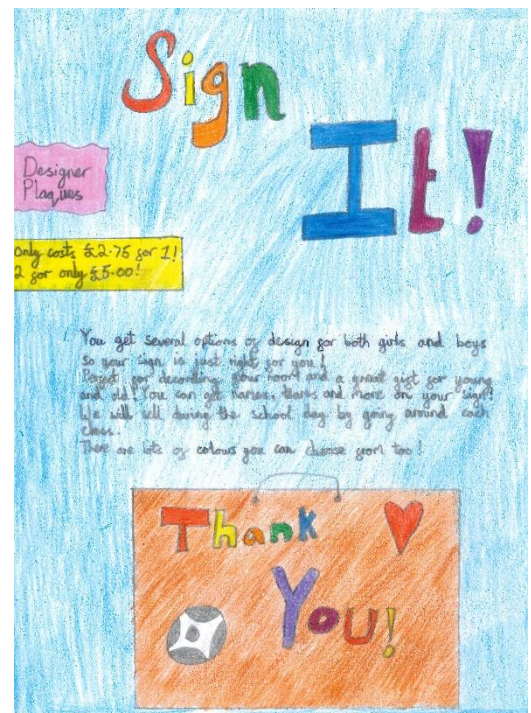 Sign
It!
Designer
Plaques
Only costs £2.75 for 1!
2 for only £5.00!
You get several options of design for both girls and boys
so your sign is just right for you!
Perfect for decorating your room and a great gift for young
and old! You can get names, teams and more on your sign!
We will sell during the school day by going around each
class.
There are lots of colours you can choose from too!
Thank
You!